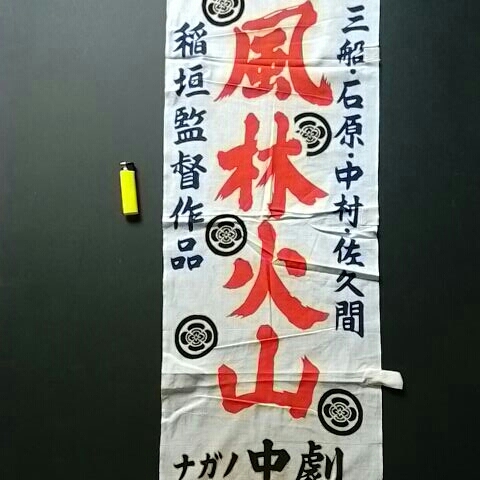 三船・石原・中村・佐久間
風林火山
稲垣監督作品
ナガノ中劇